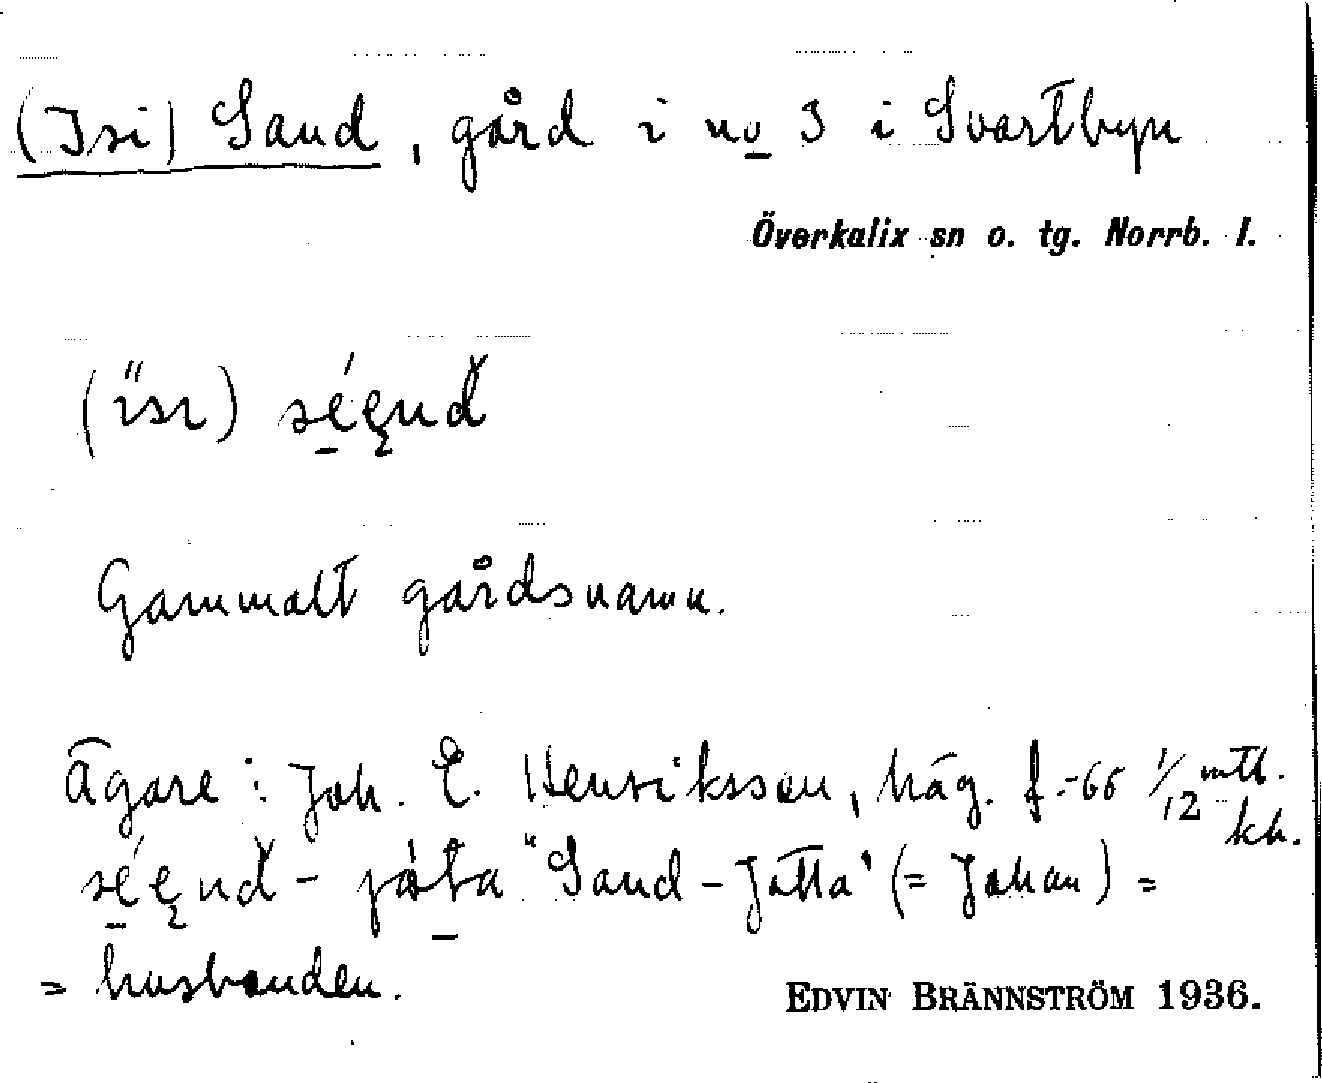 (Isi) Sand, gård i no 3 i Svartbyn
Överkalix sn o. tg. Norrb. l.
Gammalt gårdsnamn.
Ägare: Joh. E. Henriksson, häg. f.-66 1/12 mtl.
kh.
"Sand-Jåtta" (= Johan) =
= husbonden.
EDVIN BRÄNNSTRÖM 1936.